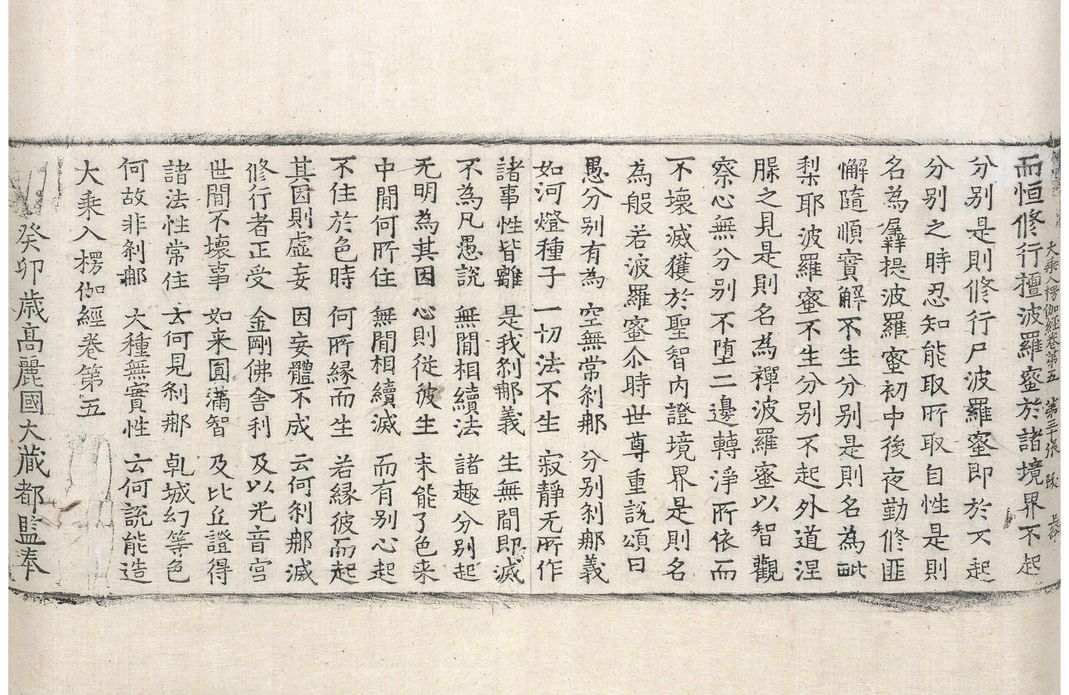 而恒修行檀波羅蜜於諸境界不起
大乘入楞伽經卷第五 第三十張
分別是則修行尸波羅蜜即於不起
分別之時忍知能取所取自性是則
名為羼提波羅蜜初中後夜勤修匪
懈隨順實解不生分別是則名為毗
梨耶波羅蜜不生分別不起外道涅
槃之見是則名為禪波羅蜜以智觀
察心無分別不墮二邊轉淨所依而
不壞滅獲於聖智內證境界是則名
為般若波羅蜜尒時世尊重說頌曰
愚分別有為 空無常剎那 分別剎那義
如河燈種子 一切法不生 寂靜无所作
諸事性皆離 是我剎那義 生無間即滅
不為凡愚說 無間相續法 諸趣分別起
无明為其因 心則從彼生 未能了色來
中間何所住 無間相續滅 而有別心起
不住於色時 何所緣而生 若緣彼而起
其因則虛妄 因妄體不成 云何剎那滅
修行者正受 金剛佛舍利 及以光音宮
世間不壞事 如来圓滿智 及比丘證得
諸法性常住 云何見剎那 乹城幻等色
何故非剎那 大種無實性 云何說能造
大乘入楞伽經卷第五
癸卯歲高麗國大藏都監奉